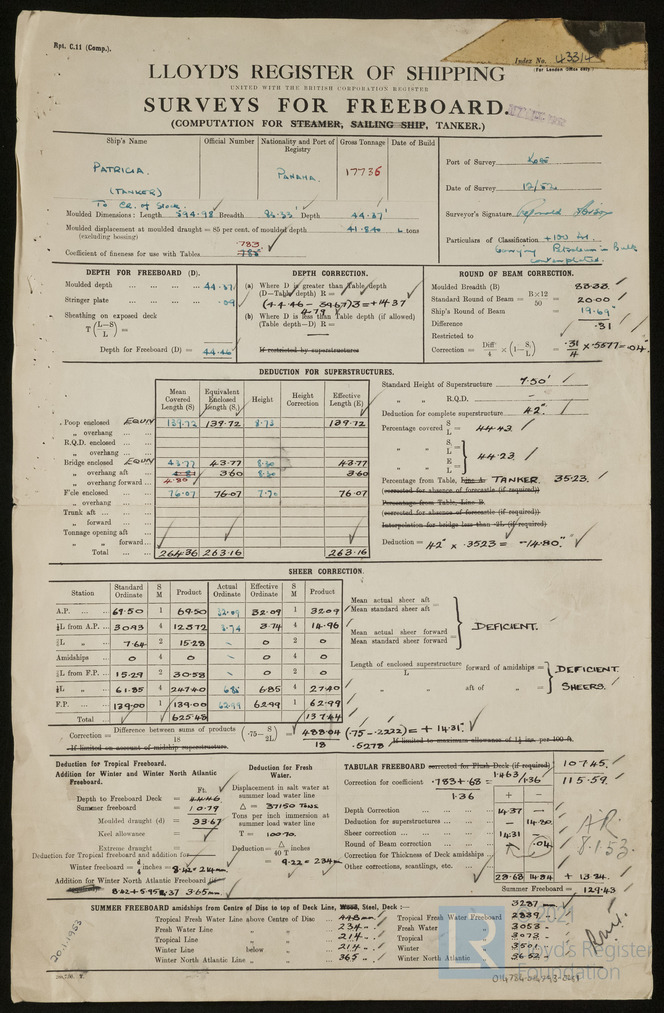 Rpt. C.11 (Comp.).
Index No. 43314
(For London Office only.)
LLOYD'S REGISTER OF SHIPPING
UNITED WITH THE BRITISH CORPORATION REGISTER
SURVEYS FOR FREEBOARD.
(COMPUTATION FOR STEAMER, SAILING SHIP, TANKER.)
Ship's Name Official Number Nationality and Port of Registry Gross Tonnage Date of Build
PATRICIA. PANAMA. 17736
(TANKER)
Port of Survey Kobe
Date of Survey 12/52
Surveyor's Signature
Particulars of Classification +100 A1.
Carrying Petroleum in Bulk
contemplated.
To CR. of Stock.
Moulded Dimensions: Length 594.98 Breadth 83.33 Depth 44.37
Moulded displacement at moulded draught = 85 per cent. of moulded depth 41.840 tons
(excluding bossing)
Coefficient of fineness for use with Tables .783
DEPTH FOR FREEBOARD (D).
Moulded depth 44.37
Stringer plate .09
Sheathing on exposed deck
T(L−S/L) =
Depth for Freeboard (D) = 44.46
DEPTH CORRECTION.
(a) Where D is greater than Table depth
(D−Table depth) R =
(44.46 − 39.67)3 = +14.37
4.79
(b) Where D is less than Table depth (if allowed)
(Table depth−D) R =
If restricted by superstructures
ROUND OF BEAM CORRECTION.
Moulded Breadth (B) 83.33
Standard Round of Beam = B×12/50 = 20.00
Ship's Round of Beam = 19.69"
Difference .31
Restricted to
Correction = Diff/4 × (1−S₁/L) = .31/4 × .5577 = .04
DEDUCTION FOR SUPERSTRUCTURES.
Mean Covered Length (S) Equivalent Enclosed Length (S₁) Height Height Correction Effective Length (E)
Poop enclosed EQUIV 139.72 139.72 8.73 139.72
„ overhang
R.Q.D. enclosed
„ overhang
Bridge enclosed EQUIV 43.77 43.77 8.50 43.77
„ overhang aft 3.60 8.50 3.60
„ overhang forward 4.80
F'cle enclosed 76.07 76.07 7.90 76.07
„ overhang
Trunk aft
„ forward
Tonnage opening aft
„ „ forward
Total 264.36 263.16 263.16
Standard Height of Superstructure 7.50'
„ „ R.Q.D. —
Deduction for complete superstructure 42"
Percentage covered S/L = 44.43
„ „ S₁/L =
„ „ E/L = 44.23
Percentage from Table, Line A. TANKER. 35.23.
(corrected for absence of forecastle (if required))
Percentage from Table, Line B.
(corrected for absence of forecastle (if required))
Interpolation for bridge less than .2L (if required)
Deduction = 42" × .3523 = −14.80."
SHEER CORRECTION.
Station Standard Ordinate S M Product Actual Ordinate Effective Ordinate S M Product
A.P. 69.50 1 69.50 32.09 32.09 1 32.09
⅙L from A.P. 30.93 4 123.72 3.74 3.74 4 14.96
⅓L „ 7.64 2 15.28 - 0 2 0
Amidships 0 4 0 - 0 4 0
⅓L from F.P. 15.29 2 30.58 - 0 2 0
⅙L „ 61.85 4 247.40 6.85 6.85 4 27.40
F.P. 139.00 1 139.00 62.99 62.99 1 62.99
Total 625.48 137.44
Mean actual sheer aft
Mean standard sheer aft =
Mean actual sheer forward
Mean standard sheer forward =
DEFICIENT.
Length of enclosed superstructure forward of amidships =
L
„ „ aft of „ =
DEFICIENT SHEERS.
Correction = Difference between sums of products/18 (.75−S/2L) = 488.04/18 (.75−.2222) = +14.31.
.5278
If limited on account of midship superstructure.
If limited to maximum allowance of 1½ ins. per 100 ft.
Deduction for Tropical Freeboard.
Addition for Winter and Winter North Atlantic Freeboard.
Ft.
Depth to Freeboard Deck = 44.46
Summer freeboard = 10.79
Moulded draught (d) = 33.67
Keel allowance =
Extreme draught =
Deduction for Tropical freeboard and addition for
Winter freeboard = d/4 inches = 8.42 = 214mm.
Addition for Winter North Atlantic Freeboard
8.42 + 5.95 = 14.37 365mm.
Deduction for Fresh Water.
Displacement in salt water at summer load water line
Δ = 37150 Tons
Tons per inch immersion at summer load water line
T = 100.70.
Deduction = Δ/40 T inches
= 9.22 = 234mm
TABULAR FREEBOARD corrected for Flush Deck (if required) 107.45.
Correction for coefficient .783+.68/1.36 = 1.463/1.36 115.59.
+ −
Depth Correction 14.37 —
Deduction for superstructures — 14.80.
Sheer correction 14.31
Round of Beam correction .04
Correction for Thickness of Deck amidships
Other corrections, scantlings, etc.
28.68 14.84 + 13.84.
Summer Freeboard = 129.43
8.1.53.
SUMMER FREEBOARD amidships from Centre of Disc to top of Deck Line, Wood, Steel, Deck :— 3287
Tropical Fresh Water Line above Centre of Disc 448 mm. Tropical Fresh Water Freeboard 2839
Fresh Water Line „ „ 234 Fresh Water „ 3053
Tropical Line „ „ 214 Tropical „ 3073
Winter Line below „ 214 Winter „ 3501
Winter North Atlantic Line „ „ 365 Winter North Atlantic „ 3652
20.1.1953
© 2021
LR
Lloyd's Register
Foundation